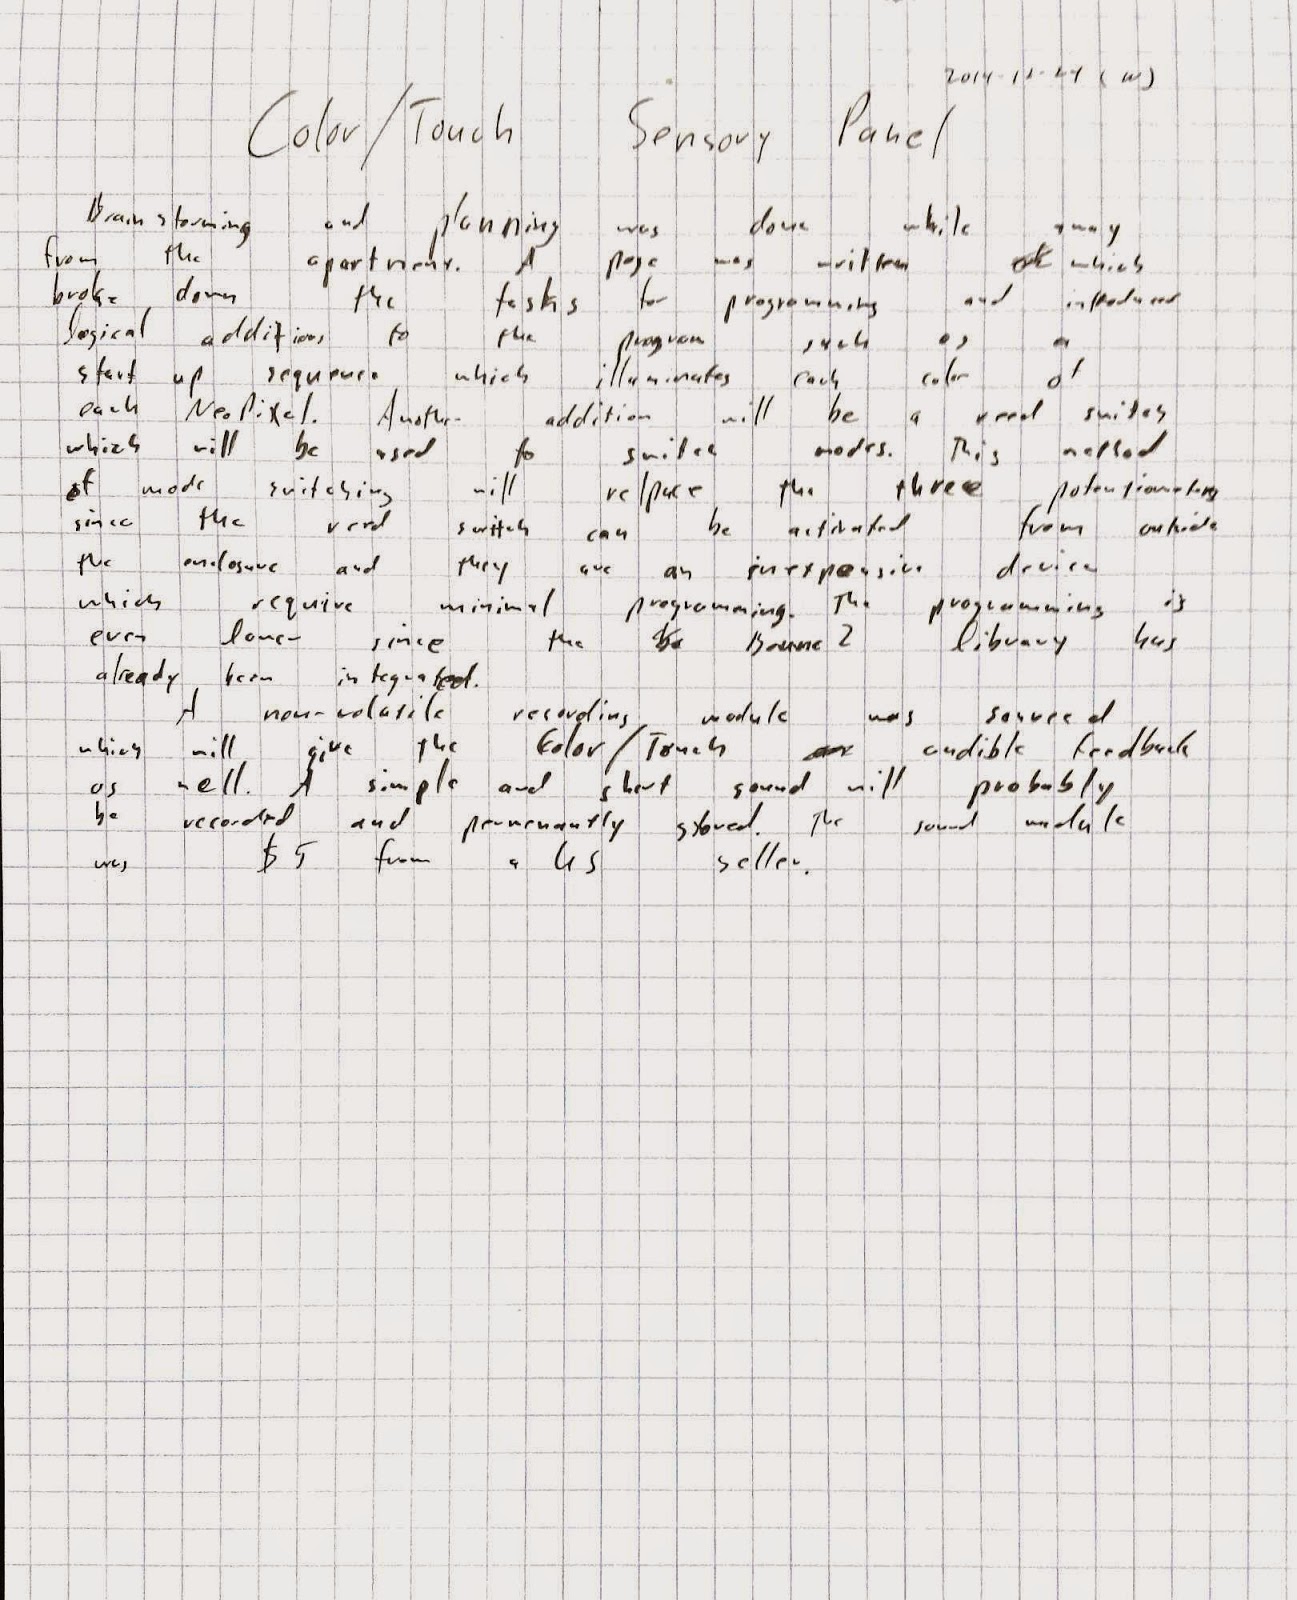 2014-12-24 (W)
Color/Touch Sensory Panel
Brainstorming and planning was done while away
from the apartment. A page was written which
broke down the tasks for programming and introduced
logical additions to the program such as a
start up sequence which illuminates each color of
each NeoPixel. Another addition will be a reed switch
which will be used to switch modes. This method
of mode switching will relpace the three potentiometers
since the reed switch can be activated from outside
the enclosure and they are an inexpensive device
which require minimal programming. The programming is
even lower since the Bounce2 library has
already been integrated.
A non-volatile recording module was sourced
which will give the Color/Touch audible feedback
as well. A simple and short sound will probably
be recorded and permenantly stored. The sound module
was $5 from a US seller.